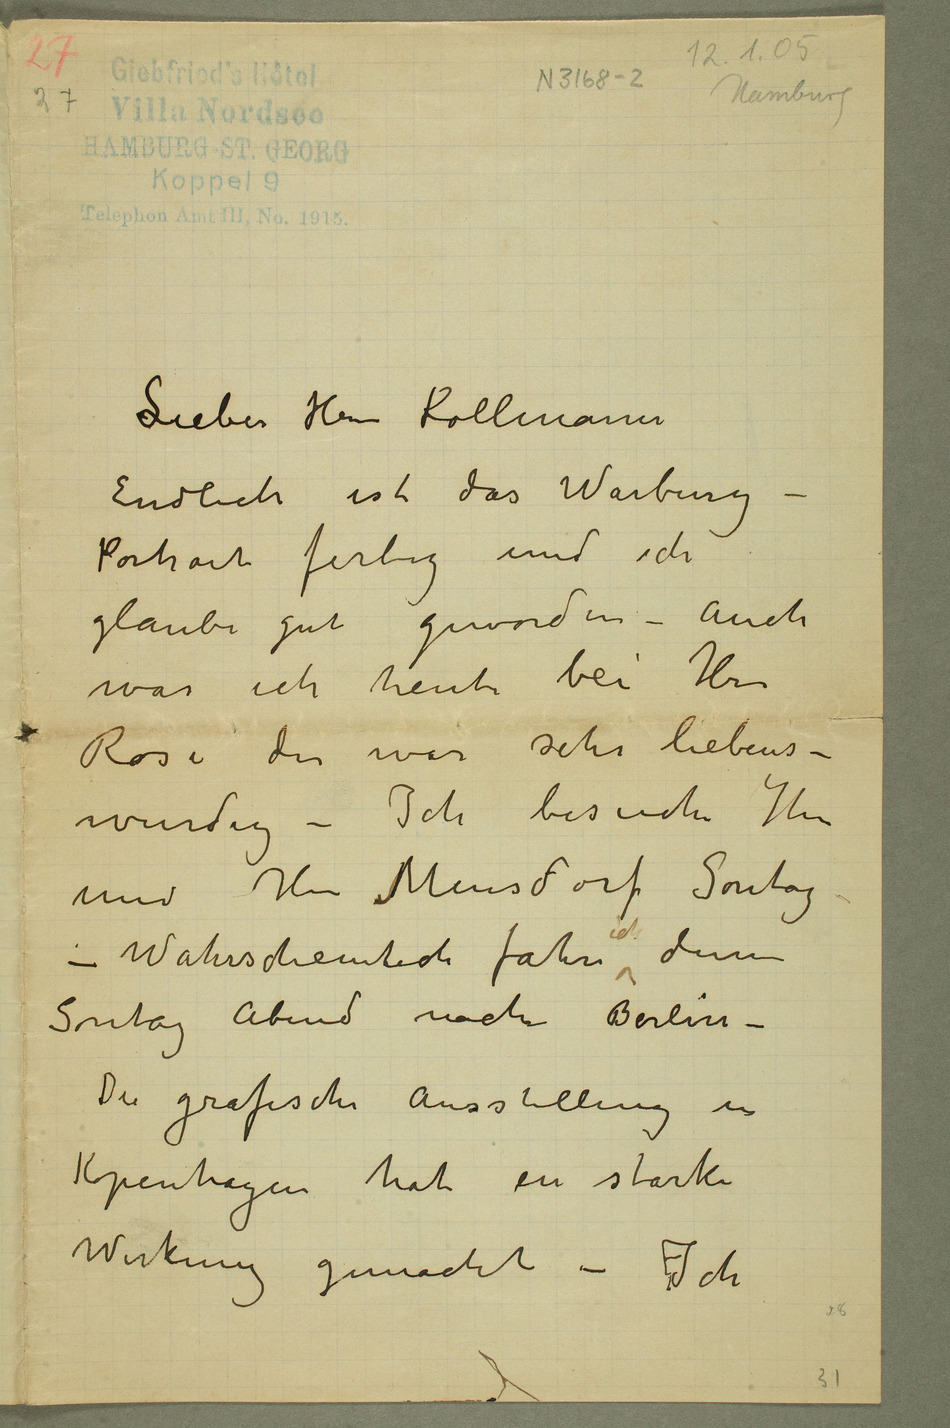 27
27
Giebfried's Hôtel
Villa Nordsee
HAMBURG-ST. GEORG
Koppel 9
Telephon Amt III, No. 1915.
N3168-2
12.1.05
Hamburg
Lieber Herr Kollmann
Endlich ist das Warburg –
Portrait fertig und ich
glaube gut geworden – auch
war ich heute bei Herr
Rose der war sehr liebens–
wurdig – Ich besuche Ihn
und Herr Mensdorf Sontag
– Wahrscheinlich fahre ich denn
Sontag Abend nach Berlin –
Die grafische Ausstellung in
Kopenhagen hat en starke
Wirkung gemacht – Ich
28
31